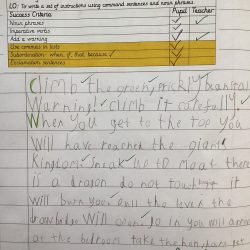 LO: To write a set of instructions using command sentences and noun phrases.
Success Criteria Pupil Teacher
Noun phrases
Imperative verbs
Add a warning
Use commas in lists
Subordination: when, if, that, because
Exclamation sentences
Climb the green, prickly beanstal
Warning! climb it carefully
When you get to the top you
will have reached the giant
Kingdom. Sneak to moat there
is a dragon do not touch it
will burn you. Pull the lever the
drawbridge will open go in you will arrive
at the bedroom take the